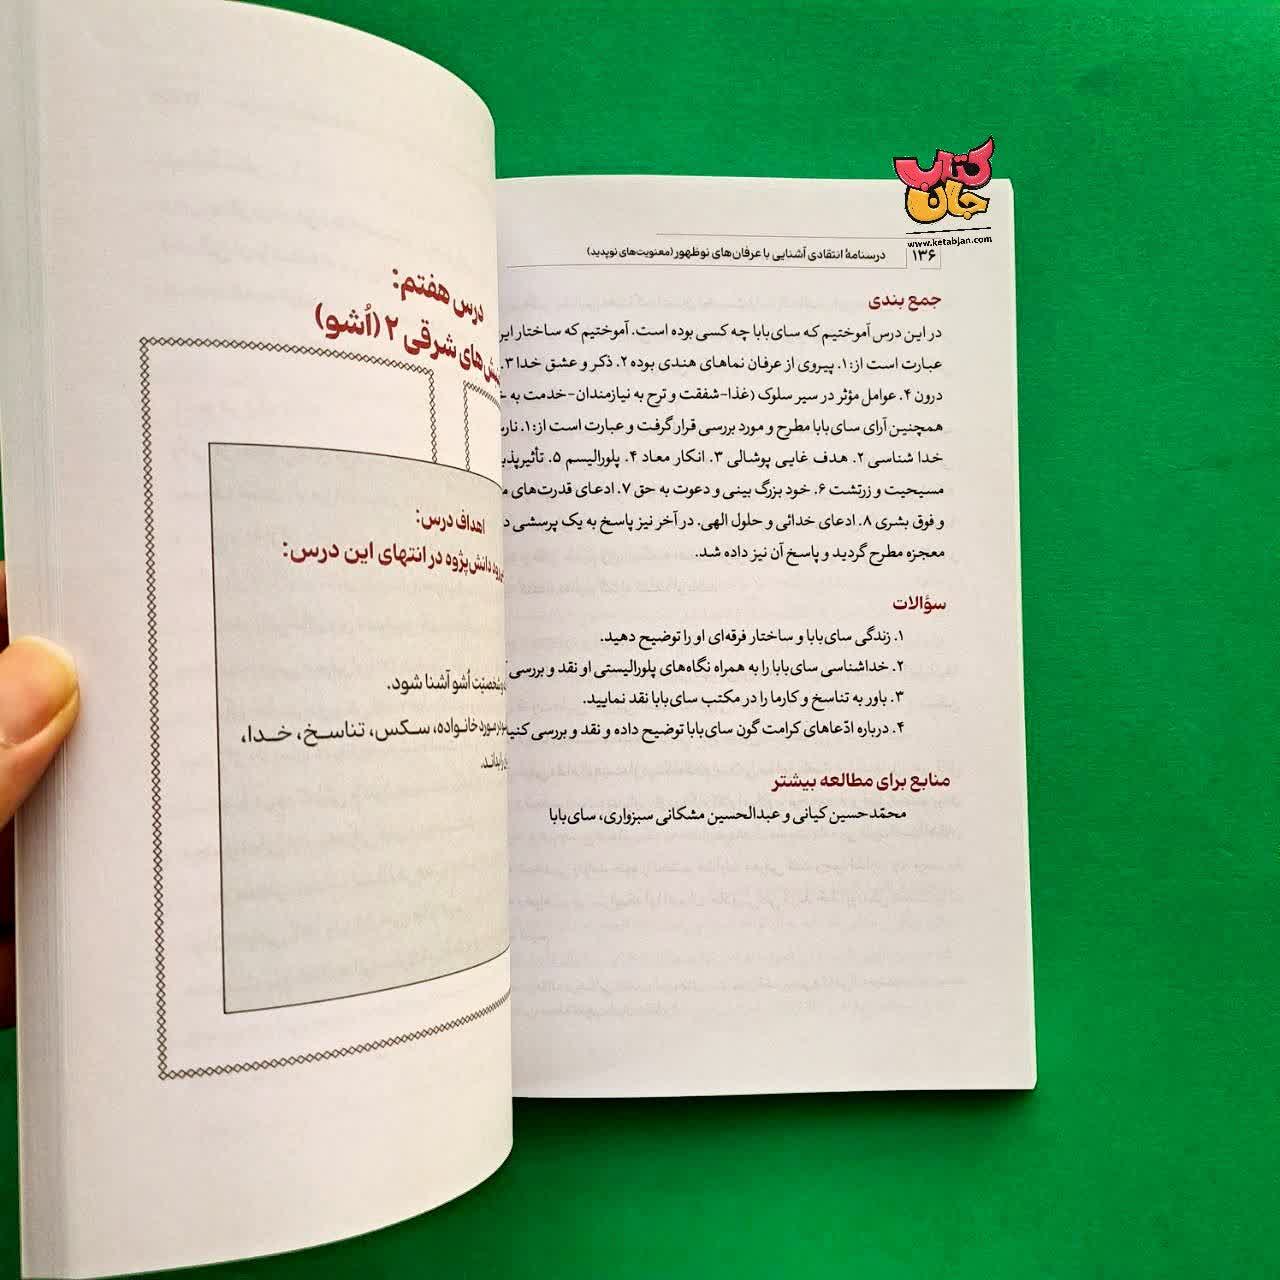 کتاب
جان
www.ketabjan.com
۱۳۶
درسنامهٔ انتقادی آشنایی با عرفان‌های نوظهور (معنویت‌های نوپدید)
جمع بندی
در این درس آموختیم که سای‌بابا چه کسی بوده است. آموختیم که ساختار
عبارت است از: ۱. پیروی از عرفان نماهای هندی بوده ۲. ذکر و عشق خدا ۳.
درون ۴. عوامل مؤثر در سیر سلوک (غذا-شفقت و ترح به نیازمندان-خدمت به
همچنین آرای سای‌بابا مطرح و مورد بررسی قرار گرفت و عبارت است از: ۱.
خدا شناسی ۲. هدف غایی پوشالی ۳. انکار معاد ۴. پلورالیسم ۵.
مسیحیت و زرتشت ۶. خود بزرگ بینی و دعوت به حق ۷. ادعای قدرت‌های
و فوق بشری ۸. ادعای خدائی و حلول الهی. در آخر نیز پاسخ به یک پرسشی
معجزه مطرح گردید و پاسخ آن نیز داده شد.
سؤالات
۱. زندگی سای‌بابا و ساختار فرقه‌ای او را توضیح دهید.
۲. خداشناسی سای‌بابا را به همراه نگاه‌های پلورالیستی او نقد و بررسی
۳. باور به تناسخ و کارما را در مکتب سای‌بابا نقد نمایید.
۴. درباره ادّعاهای کرامت گون سای‌بابا توضیح داده و نقد و بررسی
منابع برای مطالعه بیشتر
محمّدحسین کیانی و عبدالحسین مشکانی سبزواری، سای‌بابا
درس هفتم:
شرقی ۲ (اُشو)
اهداف درس:
دانش‌پژوه در انتهای این درس:
شخصیّت اُشو آشنا شود.
در مورد خانواده، سکس، تناسخ، خدا،